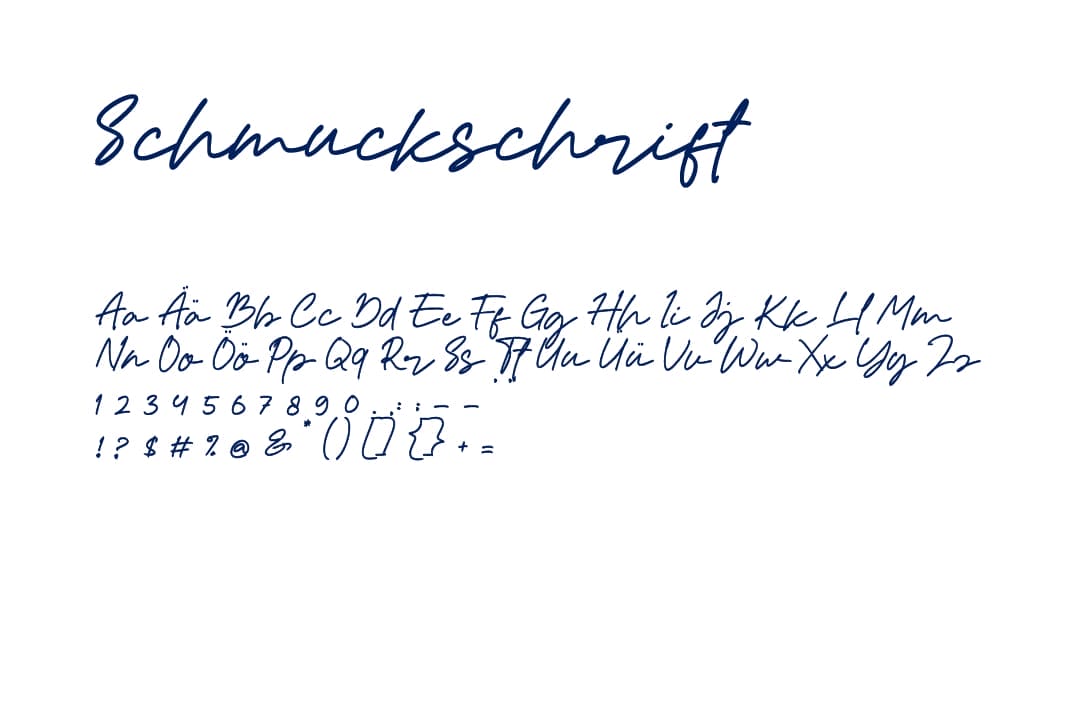 Schmuckschrift
Aa Ää Bb Cc Dd Ee Ff Gg Hh Ii Jj Kk Ll Mm
Nn Oo Öö Pp Qq Rr Ss Tt Uu Üü Vv Ww Xx Yy Zz
1 2 3 4 5 6 7 8 9 0 . , : ; – –
! ? $ # % @ & * ( ) [ ] { } + =